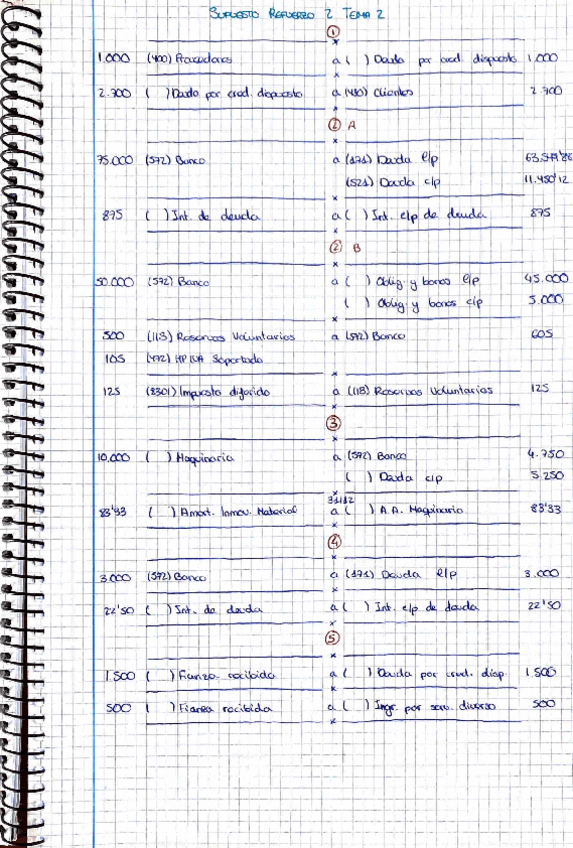 SUPUESTO REFUERZO 2 TEMA 2
1
1.000 (400) Proveedores a ( ) Deuda por cred. dispuesto 1.000
2.700 ( ) Deuda por cred. dispuesto a (430) Clientes 2.700
2 A
75.000 (572) Banco a (171) Deuda l/p
(521) Deuda c/p 11.450'12
875 ( ) Int. de deuda a ( ) Int. c/p de deuda 875
2 B
50.000 (572) Banco a ( ) Oblig. y bonos l/p 45.000
( ) Oblig. y bonos c/p 5.000
500 (113) Reservas Voluntarias a (572) Banco 605
105 (472) HP IVA Soportado
125 (8301) Impuesto diferido a (113) Reservas Voluntarias 125
3
10.000 ( ) Maquinaria a (572) Banco 4.750
( ) Deuda c/p 5.250
31/12
83'33 ( ) Amort. Inmov. Material a ( ) A.A. Maquinaria 83'33
4
3.000 (572) Banco a (171) Deuda l/p 3.000
22'50 ( ) Int. de deuda a ( ) Int. c/p de deuda 22'50
5
1.500 ( ) Fianza recibida a ( ) Deuda por cred. disp. 1.500
500 ( ) Fianza recibida a ( ) Ingr. por serv. diverso 500